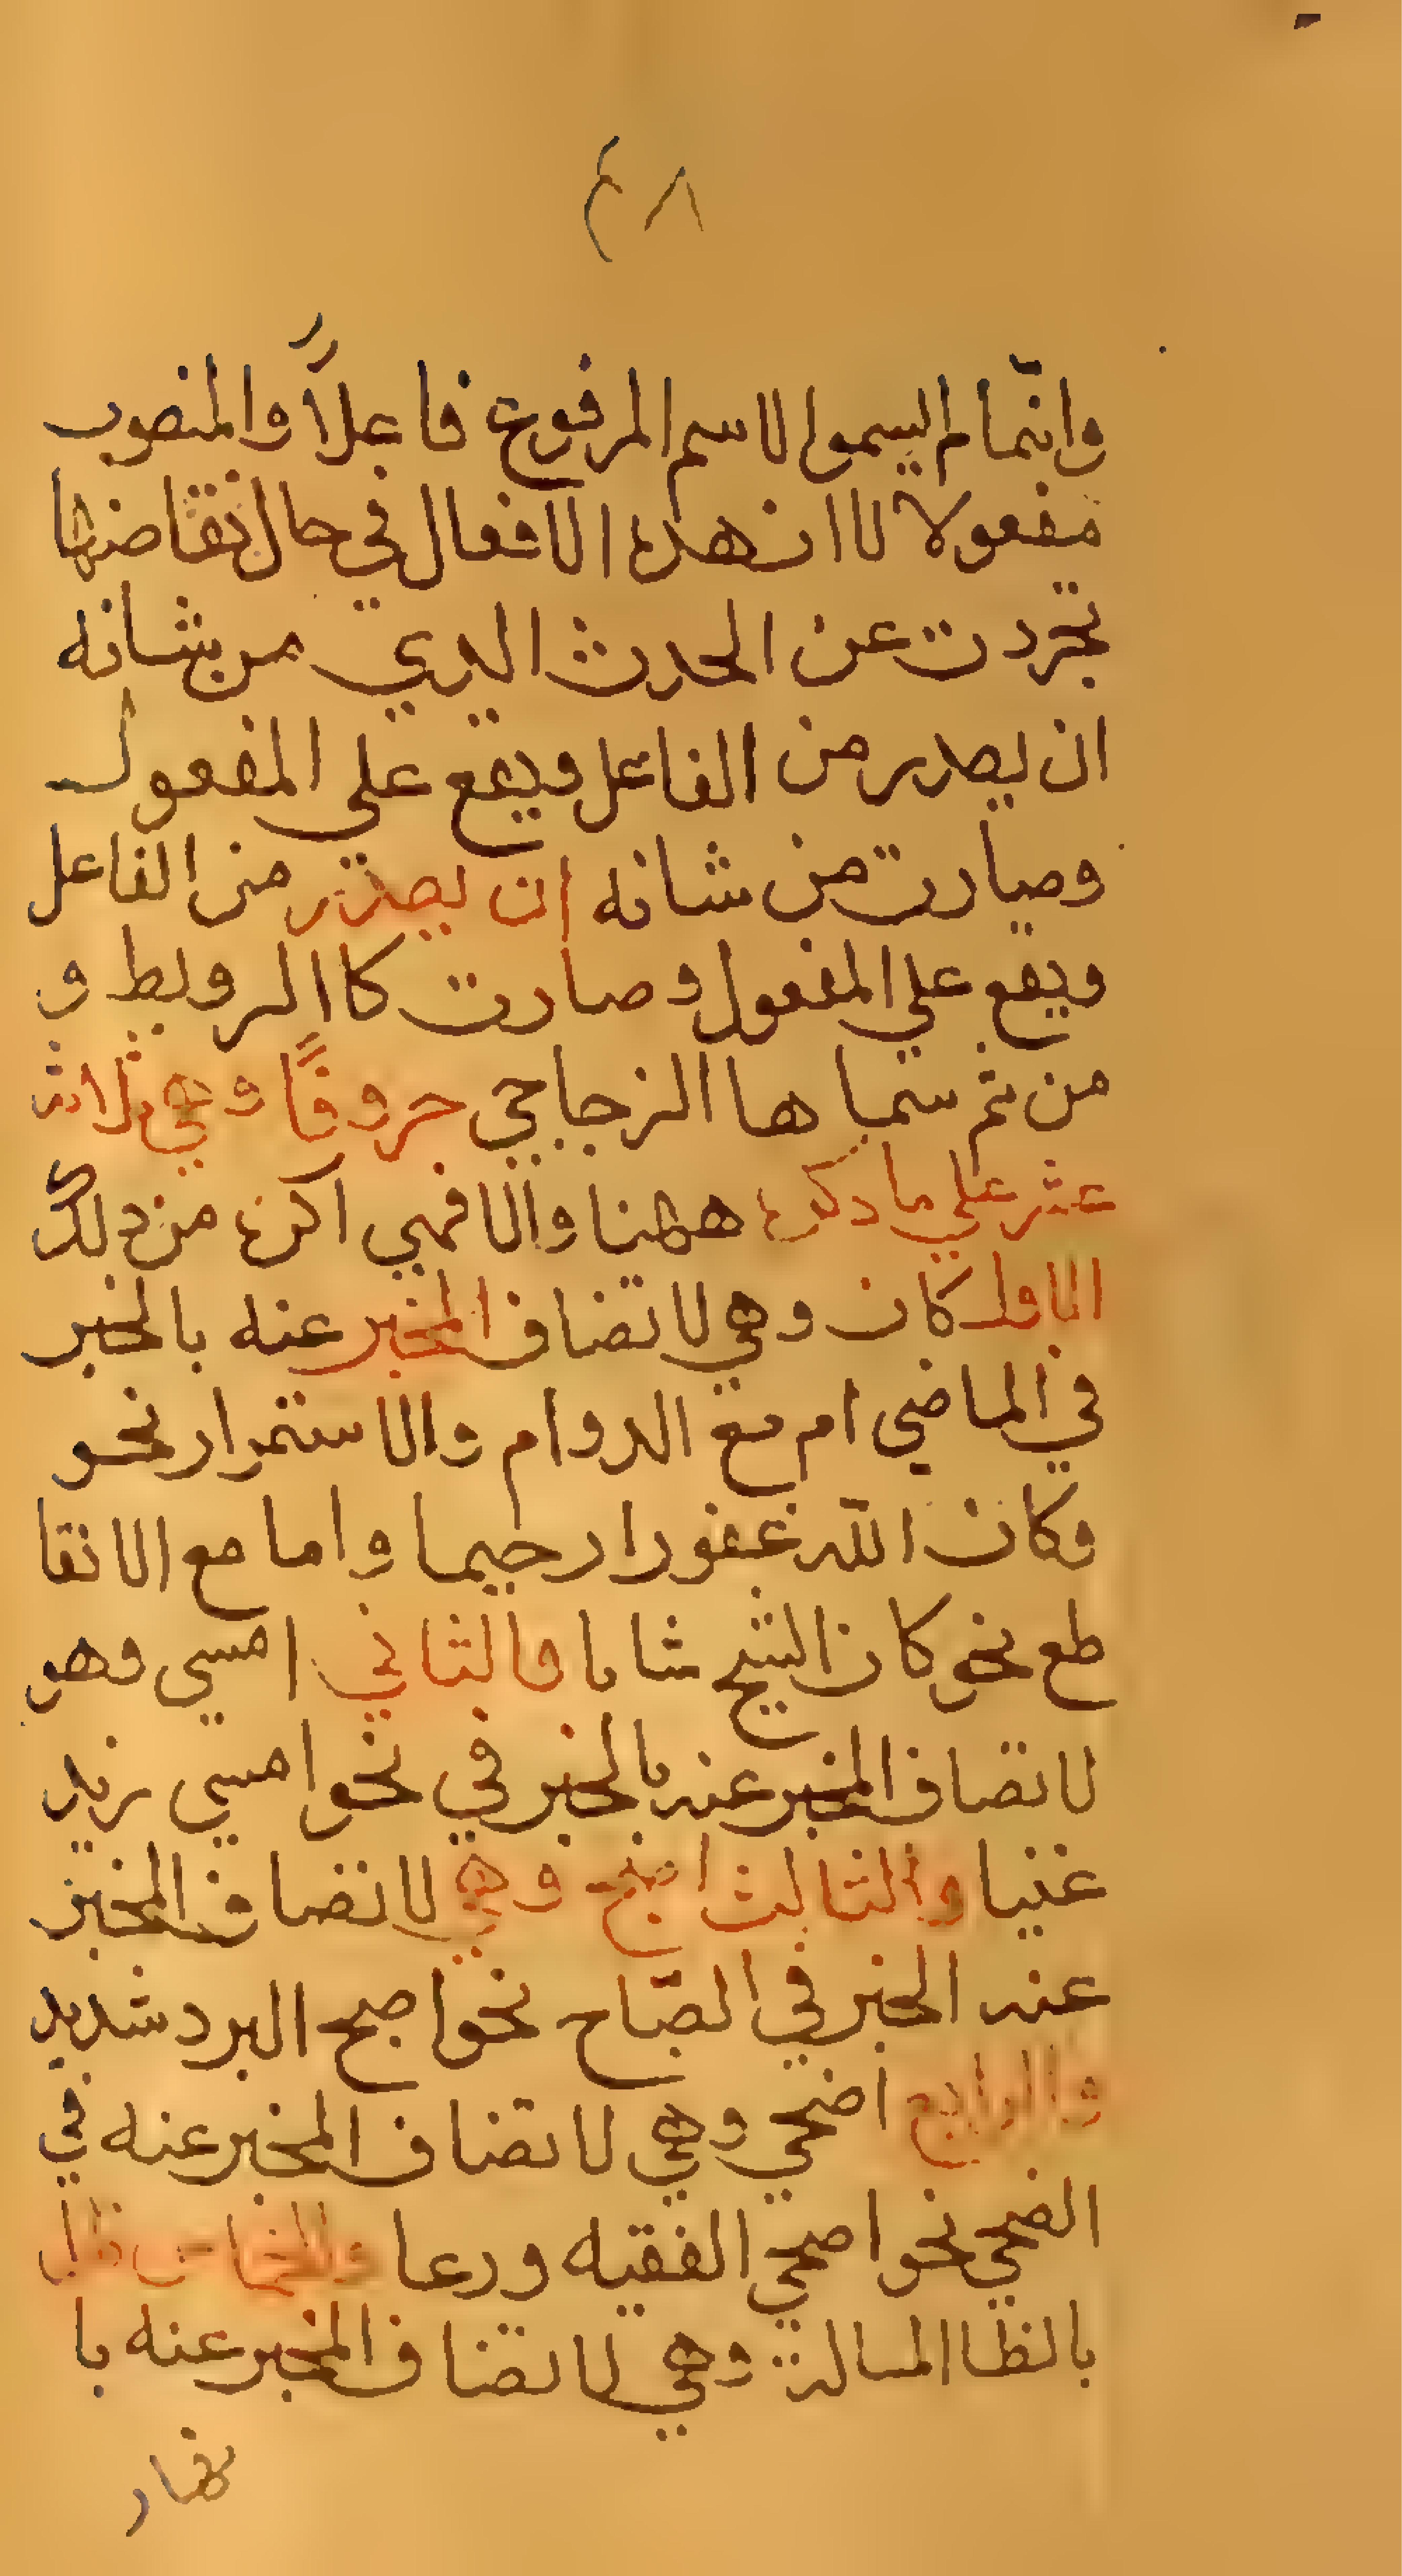 ٤٨
وانّما لم يسموا الاسم المرفوع فاعلاً والمنصوب
مفعولا لاان هده الافعال في حال نقاضها
تجردت عن الحدث الدي من شانه
ان يصدر من الفاعل ويقع علي المفعول
وصارت من شانه ان يصدر من الفاعل
ويقع علي المفعول وصارت كاالروبط و
من ثم سماها الزجاجي حروفًا وهي ثلاث
عشر علي ما دكره ههنا والافهي اكثره من دلك
الاول كان وهي لاتصاف المخبر عنه بالخبر
في الماضي ام مع الدوام والاستمرار نحو
وكان الله غفورا رحيما واما مع الانقا
طع نحو كان الشيح شابا والثاني امسي وهو
لاتصاف المخبر عنه بالخبر في نحو امسي زيد
غنيا والثالث اصبح وهي لاتصاف المخبر
عنه الخبر في الصّباح نحو اصبح البرد شديد
والرابع اضحي وهي لاتصاف المخبر عنه في
الضحي نحو اضحي الفقيه ورعا والخامس ظل
بالظا المسالة وهي لاتصاف المخبر عنه با
نهار